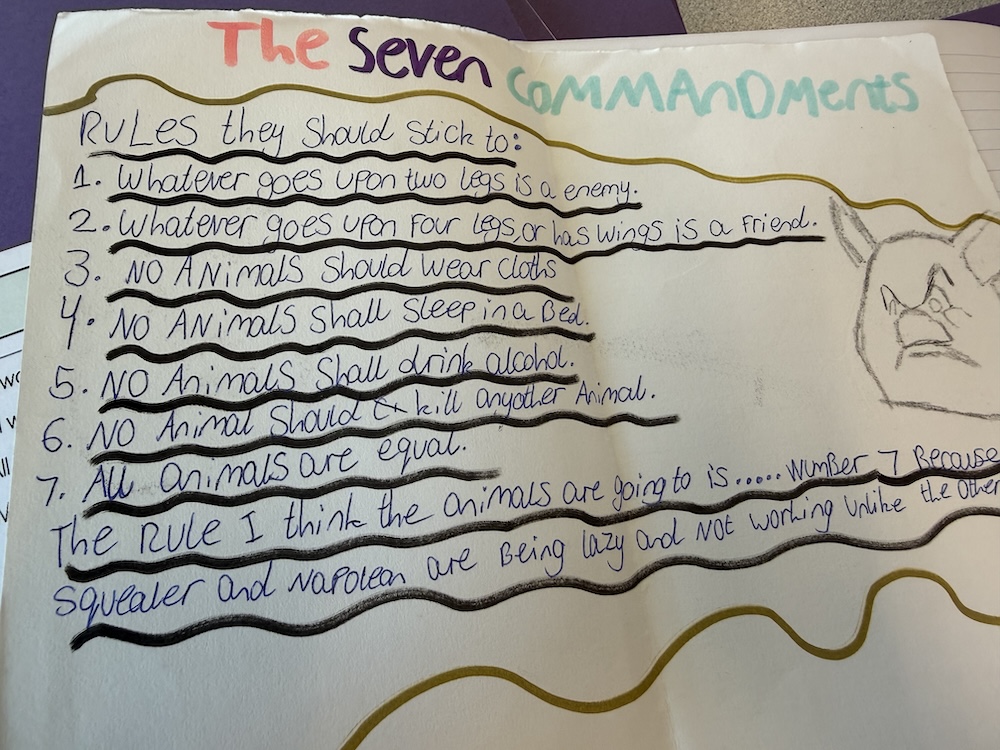 The Seven COMMAnDMents
RULES they Should Stick to:
1. Whatever goes upon two legs is a enemy.
2. Whatever goes upon four legs, or has wings is a friend.
3. NO ANimals Should wear cloths
4. NO ANimals Shall Sleep in a Bed.
5. NO Animals Shall drink alcohol.
6. NO Animal Should kill anyother Animal.
7. All animals are equal.
The RULE I think the animals are going to is..... Wumber 7 Because
Squealer and Napolean are Being lazy and Not working unlike the other